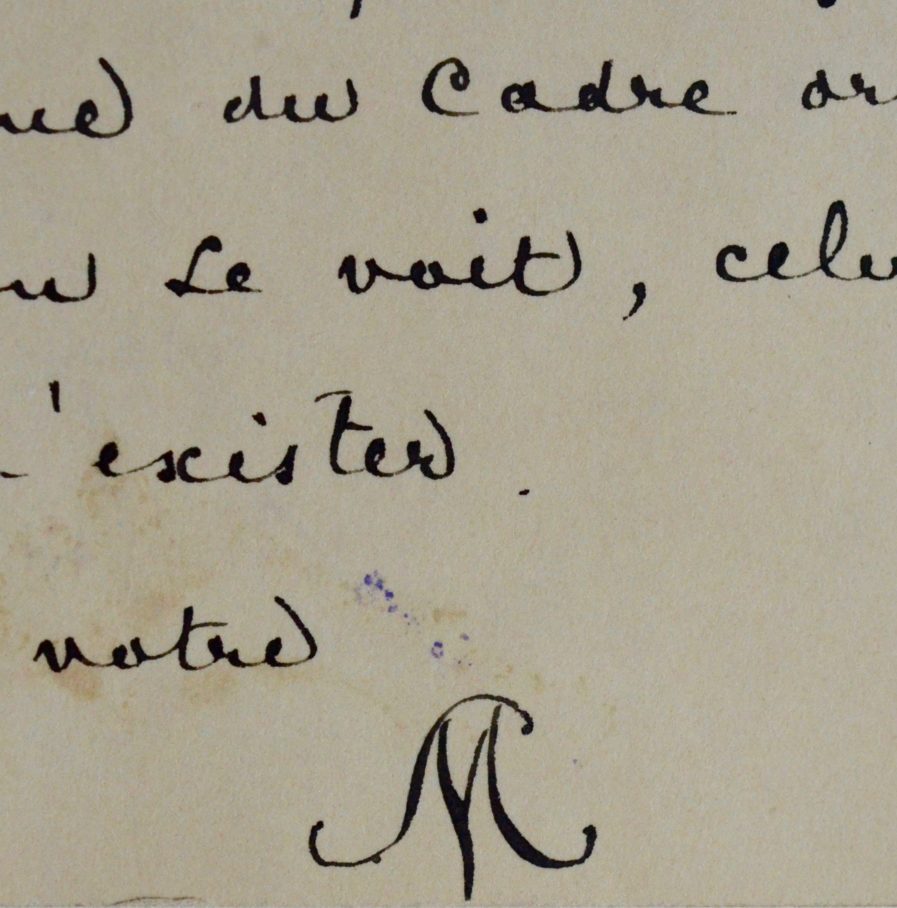 du Cadre
Le voit, celu
'exister.
votre
M